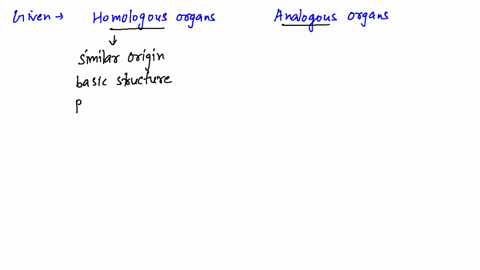 Given → Homologous organs Analogous organs
↓
similar origin
basic structure
p